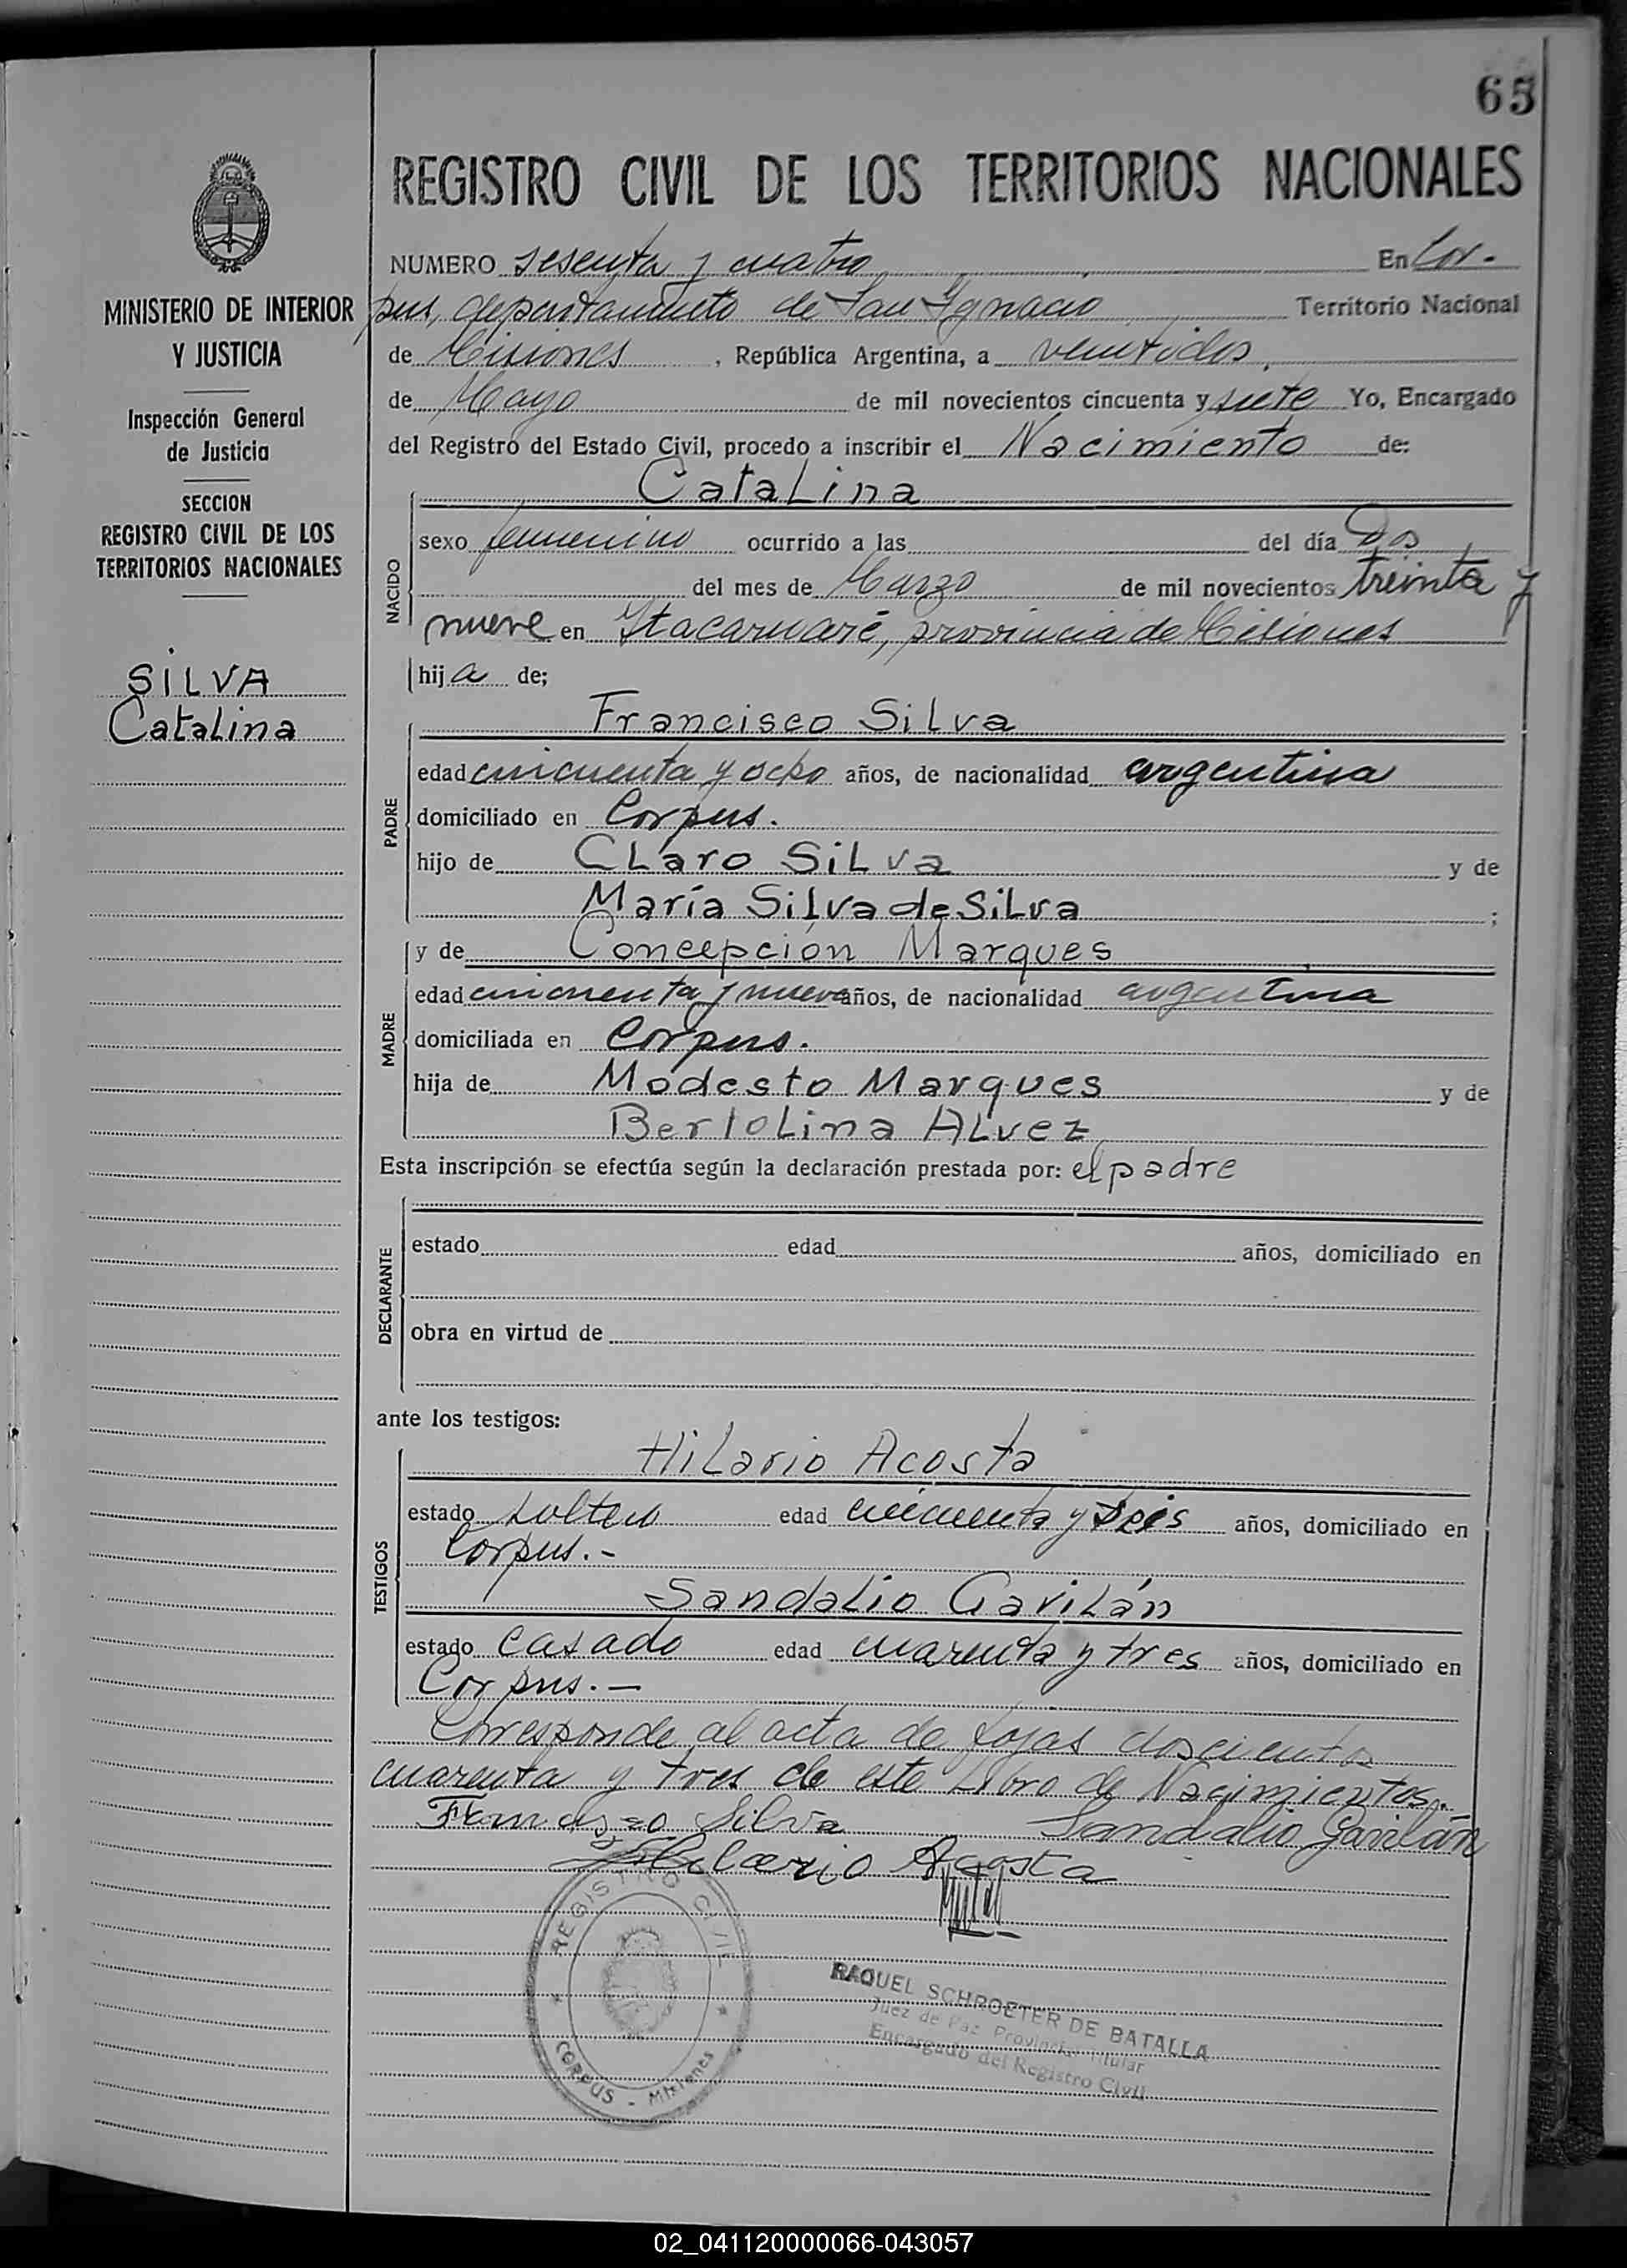 65
REGISTRO CIVIL DE LOS TERRITORIOS NACIONALES
MINISTERIO DE INTERIOR
Y JUSTICIA
Inspección General
de Justicia
SECCION
REGISTRO CIVIL DE LOS
TERRITORIOS NACIONALES
SILVA
Catalina
NUMERO sesenta y cuatro En Cor-
pus, departamento de San Ignacio Territorio Nacional
de Misiones, República Argentina, a veintidos,
de Mayo de mil novecientos cincuenta y siete Yo, Encargado
del Registro del Estado Civil, procedo a inscribir el Nacimiento de:
NACIDO
Catalina
sexo femenino ocurrido a las del día Dos
del mes de Marzo de mil novecientos treinta y
nueve en Itacaruaré, provincia de Misiones
hija de;
PADRE
Francisco Silva
edad cincuenta y ocho años, de nacionalidad argentina
domiciliado en Corpus.
hijo de Claro Silva y de
María Silva de Silva ;
MADRE
y de Concepción Marques
edad cincuenta y nueve años, de nacionalidad argentina
domiciliada en Corpus.
hija de Modesto Marques y de
Bertolina Alvez
Esta inscripción se efectúa según la declaración prestada por: el padre
DECLARANTE
estado edad años, domiciliado en
obra en virtud de
ante los testigos:
TESTIGOS
Hilario Acosta
estado soltero edad cincuenta y seis años, domiciliado en
Corpus.-
Sandalio Gavilán
estado casado edad cuarenta y tres años, domiciliado en
Corpus.-
Corresponde al acta de fojas doscientos
cuarenta y tres de este Libro de Nacimientos.
Silva Sandalio Gavilán
Hilario Acosta
REGISTRO CIVIL
CORPUS - Misiones
RAQUEL SCHROETER DE BATALLA
Juez de Paz Provincial Titular
Encargado del Registro Civil
02_041120000066-043057